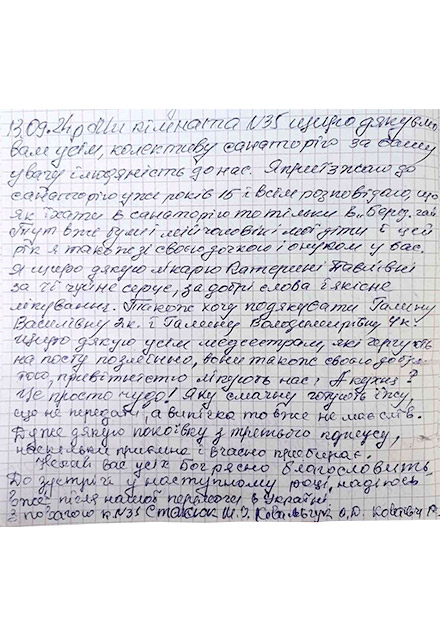 13.09.24р Ми кімната N35 щиро дякуємо
вам усім, колективу санаторію за вашу
увагу і людяність до нас. Я приїзжаю до
санаторію уже років 15 і всім розповідаю, що
як їхати в санаторію то тільки в „Берез. гай
Тут вже були і мій чоловік і мої діти. В цей
рік я також із своєю дочкою і онуком у вас.
Я щиро дякую лікарю Катерині Павлівні
за її чуйне серце, за добрі слова і якісне
лікування. Також хочу подякувати Галину
Василівну 2к. і Галину Володимирівну 4к.
Щиро дякую усім медсестрам, які чергують
на посту позмінно, вони також своєю добро-
тою, привітністю лікують нас. А кухня?
Це просто чудо! Яку смачну готують їжу,
що не передати, а випічка то вже не має слів.
Дуже дякую покоївку з третього корпусу,
наскільки приємно і вчасно прибирає.
Нехай вас усіх Бог рясно благословить,
До зустрічі у наступному році, надіюсь
вже після нашої перемоги в Україні
З повагою к.N35 Стасюк М.І. Ковальчук О.Д.